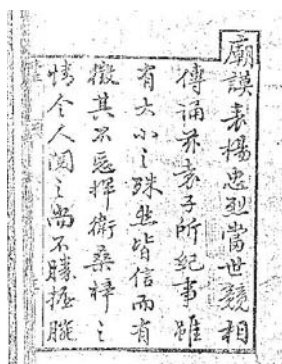 廟謨表揚忠烈當世競相
傳誦第袁子所紀事雖
有大小之殊然皆信而有
徵其不忘捍衛桑梓之
情令人閱之尚不勝扼腕